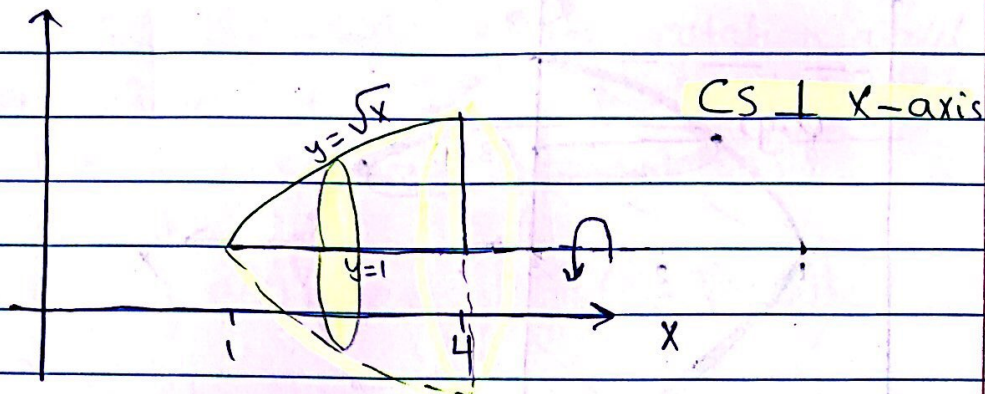 CS ⊥ x-axis
y=√x
y=1
1
4
X